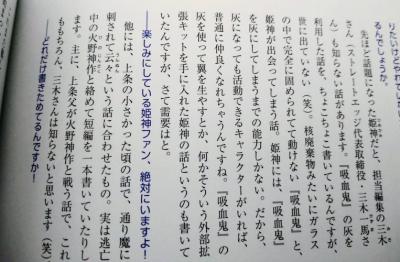 りたいけどられてい
るんでしょうか。
先ほど話題になった姫神だと、担当編集の三木
さん（ストレートエッジ代表取締役・三木一馬さ
ん）も知らない話があります。『吸血鬼』の灰を
利用した話を、ちょこちょこ書いているんですが、
世に出ていない（笑）。核廃棄物みたいにガラス
の中で完全に固められてて動けない『吸血鬼』と、
姫神が出会ってしまう話。姫神には、『吸血鬼』
を灰にしてしまうまでの能力しかない。だから、
灰になっても活動できるキャラクターがいれば、
普通に仲良くなれちゃうんですね。『吸血鬼』の
灰を使って翼を生やすとか、何かそういう外部拡
張キットを手に入れた姫神の話というのも書いて
いたんですが、さて需要はと。
――楽しみにしている姫神ファン、絶対にいますよ！
他には、上条の小さかった頃の話で、通り魔に
刺されて云々という話に合わせたもの。実は逃亡
中の火野神作と絡めて短編を一本書いていたりし
ます。主に、上条父が火野神作と戦う話で、これ
ももちろん、三木さんは知らないと思います（笑）
――どれだけ書きためてるんですか！